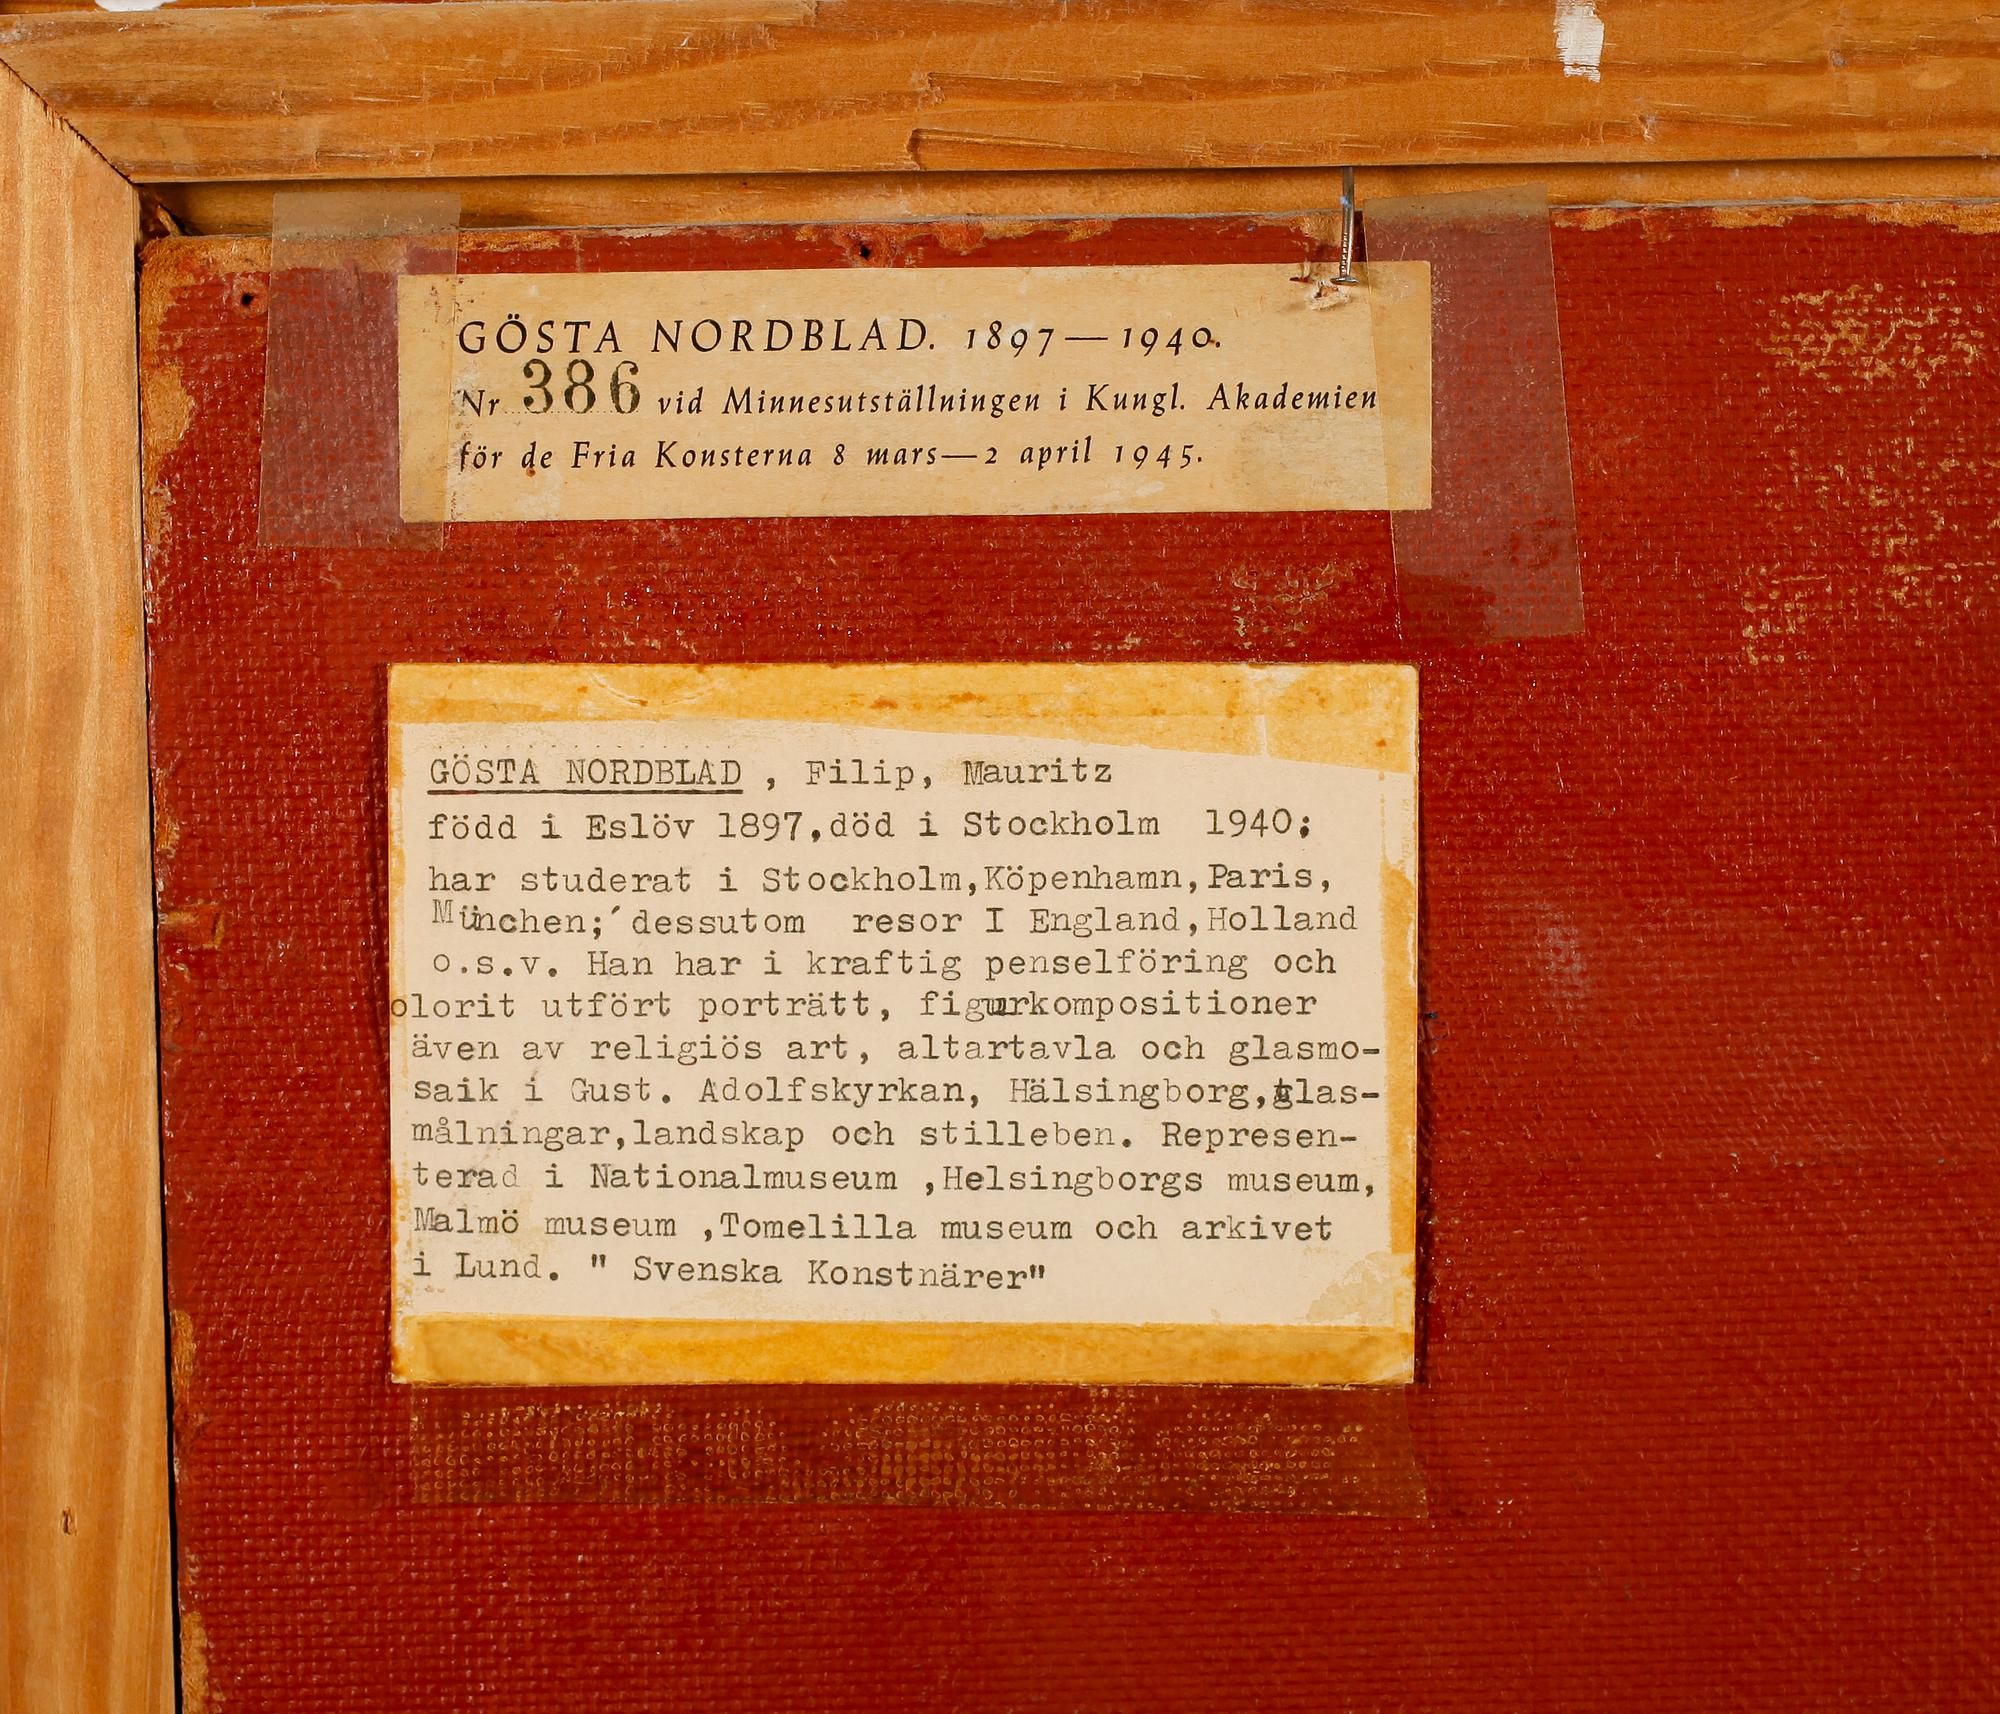 GÖSTA NORDBLAD. 1897—1940.
Nr 386 vid Minnesutställningen i Kungl. Akademien
för de Fria Konsterna 8 mars—2 april 1945.
GÖSTA NORDBLAD , Filip, Mauritz
född i Eslöv 1897,död i Stockholm 1940;
har studerat i Stockholm,Köpenhamn,Paris,
München;´dessutom resor I England,Holland
o.s.v. Han har i kraftig penselföring och
olorit utfört porträtt, figurkompositioner
även av religiös art, altartavla och glasmo-
saik i Gust. Adolfskyrkan, Hälsingborg,glas-
målningar,landskap och stilleben. Represen-
terad i Nationalmuseum ,Helsingborgs museum,
Malmö museum ,Tomelilla museum och arkivet
i Lund. " Svenska Konstnärer"